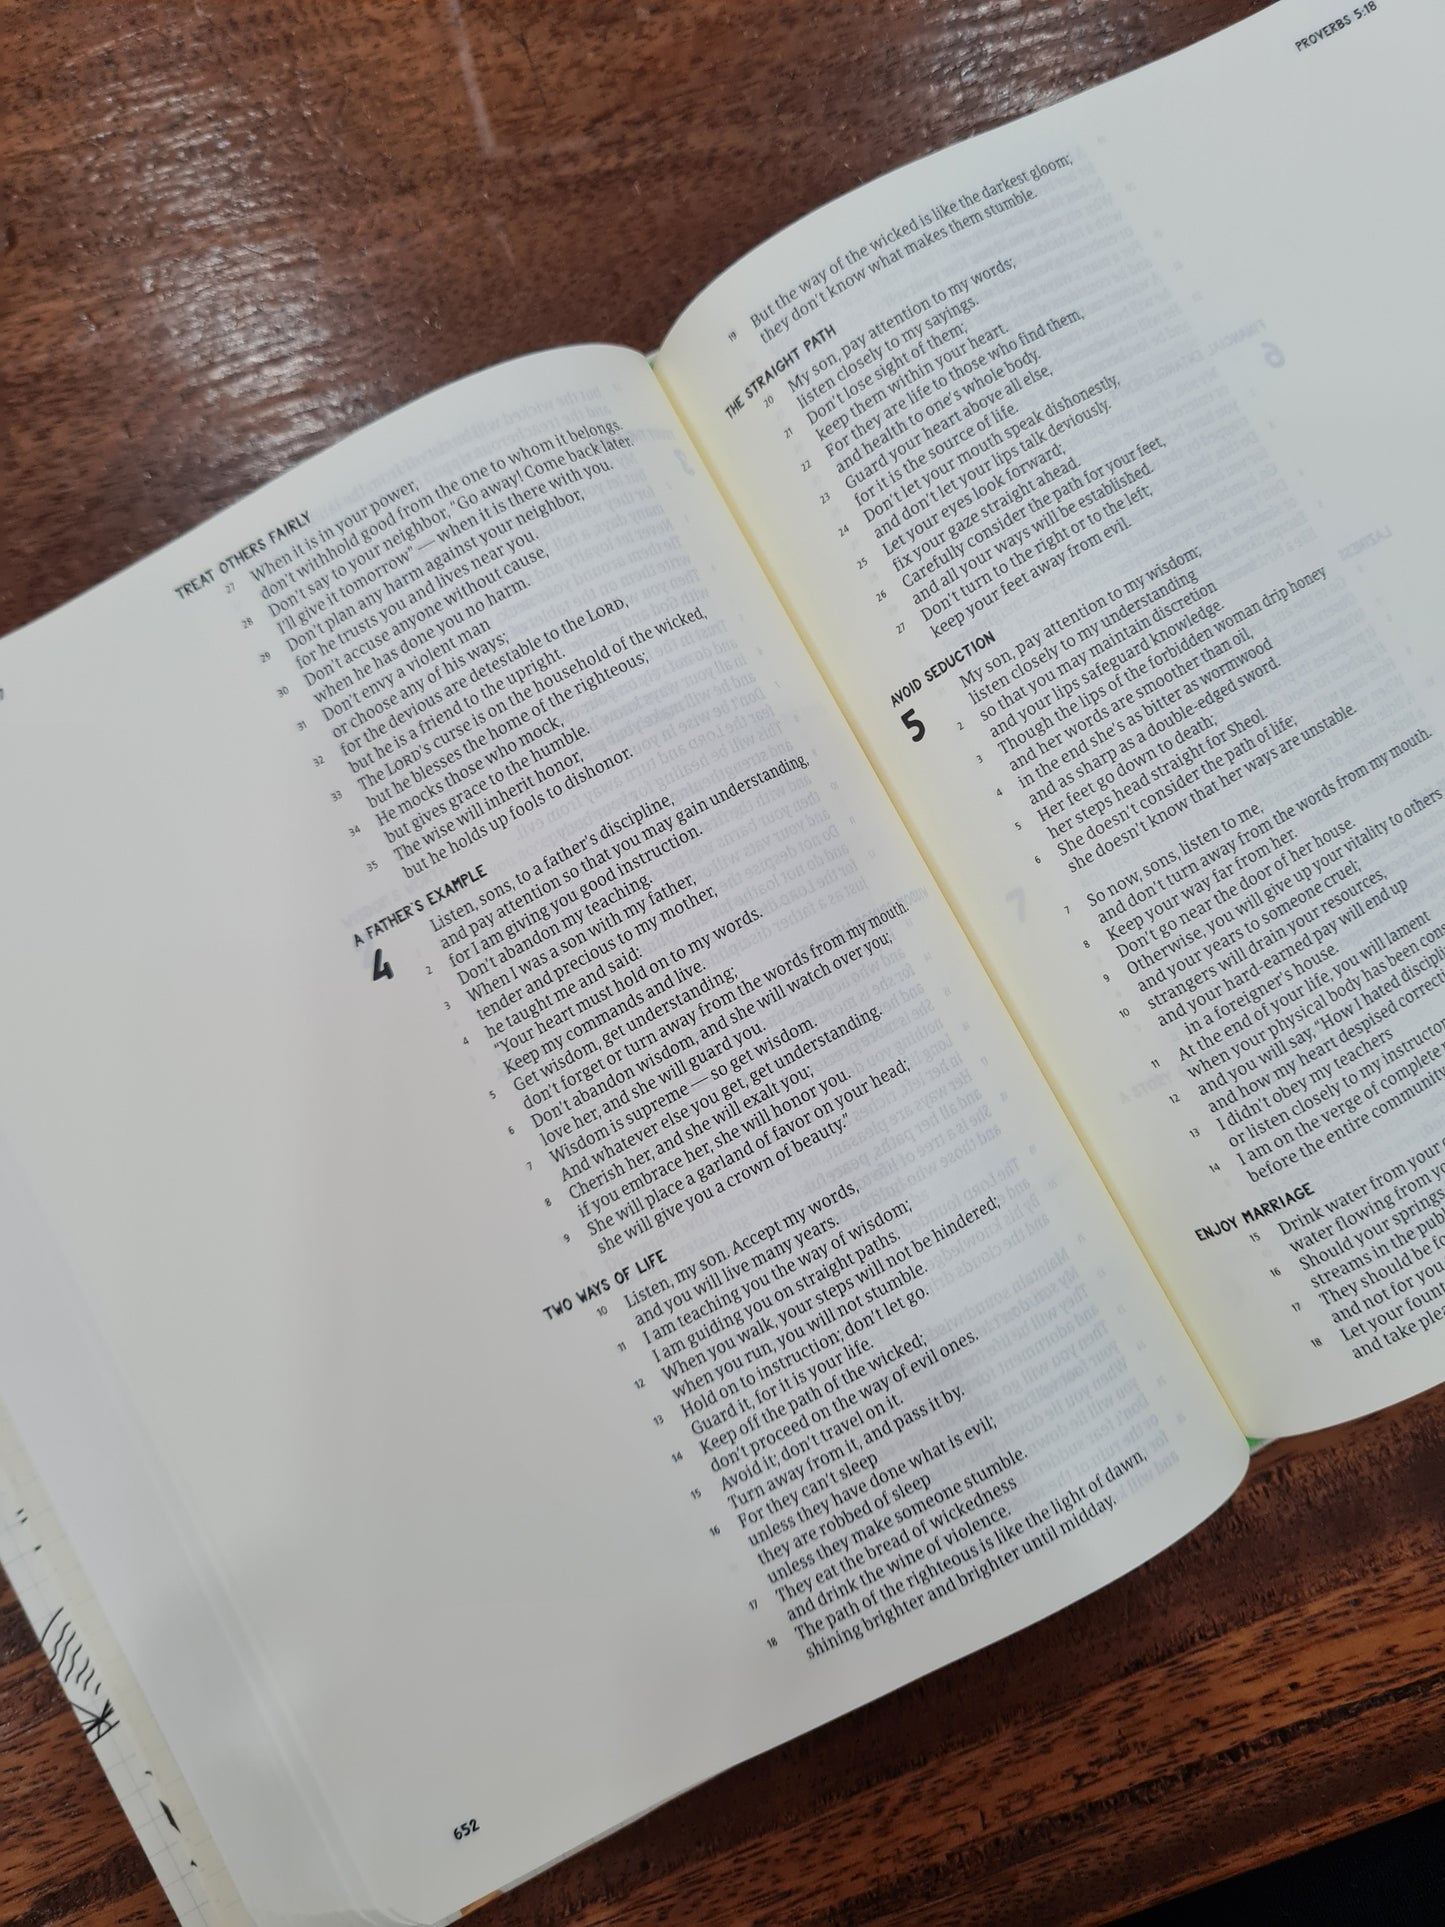 TREAT OTHERS FAIRLY
27 When it is in your power,
don't withhold good from the one to whom it belongs.
28 Don't say to your neighbor, "Go away! Come back later.
I'll give it tomorrow" — when it is there with you.
29 Don't plan any harm against your neighbor,
for he trusts you and lives near you.
30 Don't accuse anyone without cause,
when he has done you no harm.
31 Don't envy a violent man
or choose any of his ways;
32 for the devious are detestable to the LORD,
but he is a friend to the upright.
33 The LORD's curse is on the household of the wicked,
but he blesses the home of the righteous;
34 He mocks those who mock,
but gives grace to the humble.
35 The wise will inherit honor,
but he holds up fools to dishonor.
A FATHER'S EXAMPLE
4 Listen, sons, to a father's discipline,
and pay attention so that you may gain understanding,
2 for I am giving you good instruction.
Don't abandon my teaching.
3 When I was a son with my father,
tender and precious to my mother,
4 he taught me and said:
"Your heart must hold on to my words.
Keep my commands and live.
5 Get wisdom, get understanding;
don't forget or turn away from the words from my mouth.
6 Don't abandon wisdom, and she will watch over you;
love her, and she will guard you.
7 Wisdom is supreme — so get wisdom.
And whatever else you get, get understanding.
8 Cherish her, and she will exalt you;
if you embrace her, she will honor you.
9 She will place a garland of favor on your head;
she will give you a crown of beauty."
TWO WAYS OF LIFE
10 Listen, my son. Accept my words,
and you will live many years.
11 I am teaching you the way of wisdom;
I am guiding you on straight paths.
12 When you walk, your steps will not be hindered;
when you run, you will not stumble.
13 Hold on to instruction; don't let go.
Guard it, for it is your life.
14 Keep off the path of the wicked;
don't proceed on the way of evil ones.
15 Avoid it; don't travel on it.
Turn away from it, and pass it by.
16 For they can't sleep
unless they have done what is evil;
they are robbed of sleep
unless they make someone stumble.
17 They eat the bread of wickedness
and drink the wine of violence.
18 The path of the righteous is like the light of dawn,
shining brighter and brighter until midday.
652
PROVERBS 5:18
19 But the way of the wicked is like the darkest gloom;
they don't know what makes them stumble.
THE STRAIGHT PATH
20 My son, pay attention to my words;
listen closely to my sayings.
21 Don't lose sight of them;
keep them within your heart.
22 For they are life to those who find them,
and health to one's whole body.
23 Guard your heart above all else,
for it is the source of life.
24 Don't let your mouth speak dishonestly,
and don't let your lips talk deviously.
25 Let your eyes look forward;
fix your gaze straight ahead.
26 Carefully consider the path for your feet,
and all your ways will be established.
27 Don't turn to the right or to the left;
keep your feet away from evil.
AVOID SEDUCTION
5 My son, pay attention to my wisdom;
listen closely to my understanding
2 so that you may maintain discretion
and your lips safeguard knowledge.
3 Though the lips of the forbidden woman drip honey
and her words are smoother than oil,
4 in the end she's as bitter as wormwood
and as sharp as a double-edged sword.
5 Her feet go down to death;
her steps head straight for Sheol.
6 She doesn't consider the path of life;
she doesn't know that her ways are unstable.
7 So now, sons, listen to me,
and don't turn away from the words from my mouth.
8 Keep your way far from her.
Don't go near the door of her house.
9 Otherwise, you will give up your vitality to others
and your years to someone cruel;
10 strangers will drain your resources,
and your hard-earned pay will end up
in a foreigner's house.
11 At the end of your life, you will lament
when your physical body has been
12 and you will say, "How I hated
and how my heart despised
13 I didn't obey my teachers
or listen closely to my
14 I am on the verge of complete
before the entire community
ENJOY MARRIAGE
15 Drink water from your
water flowing from
16 Should your springs
streams in the
17 They should be
and not for you
18 Let your
and take